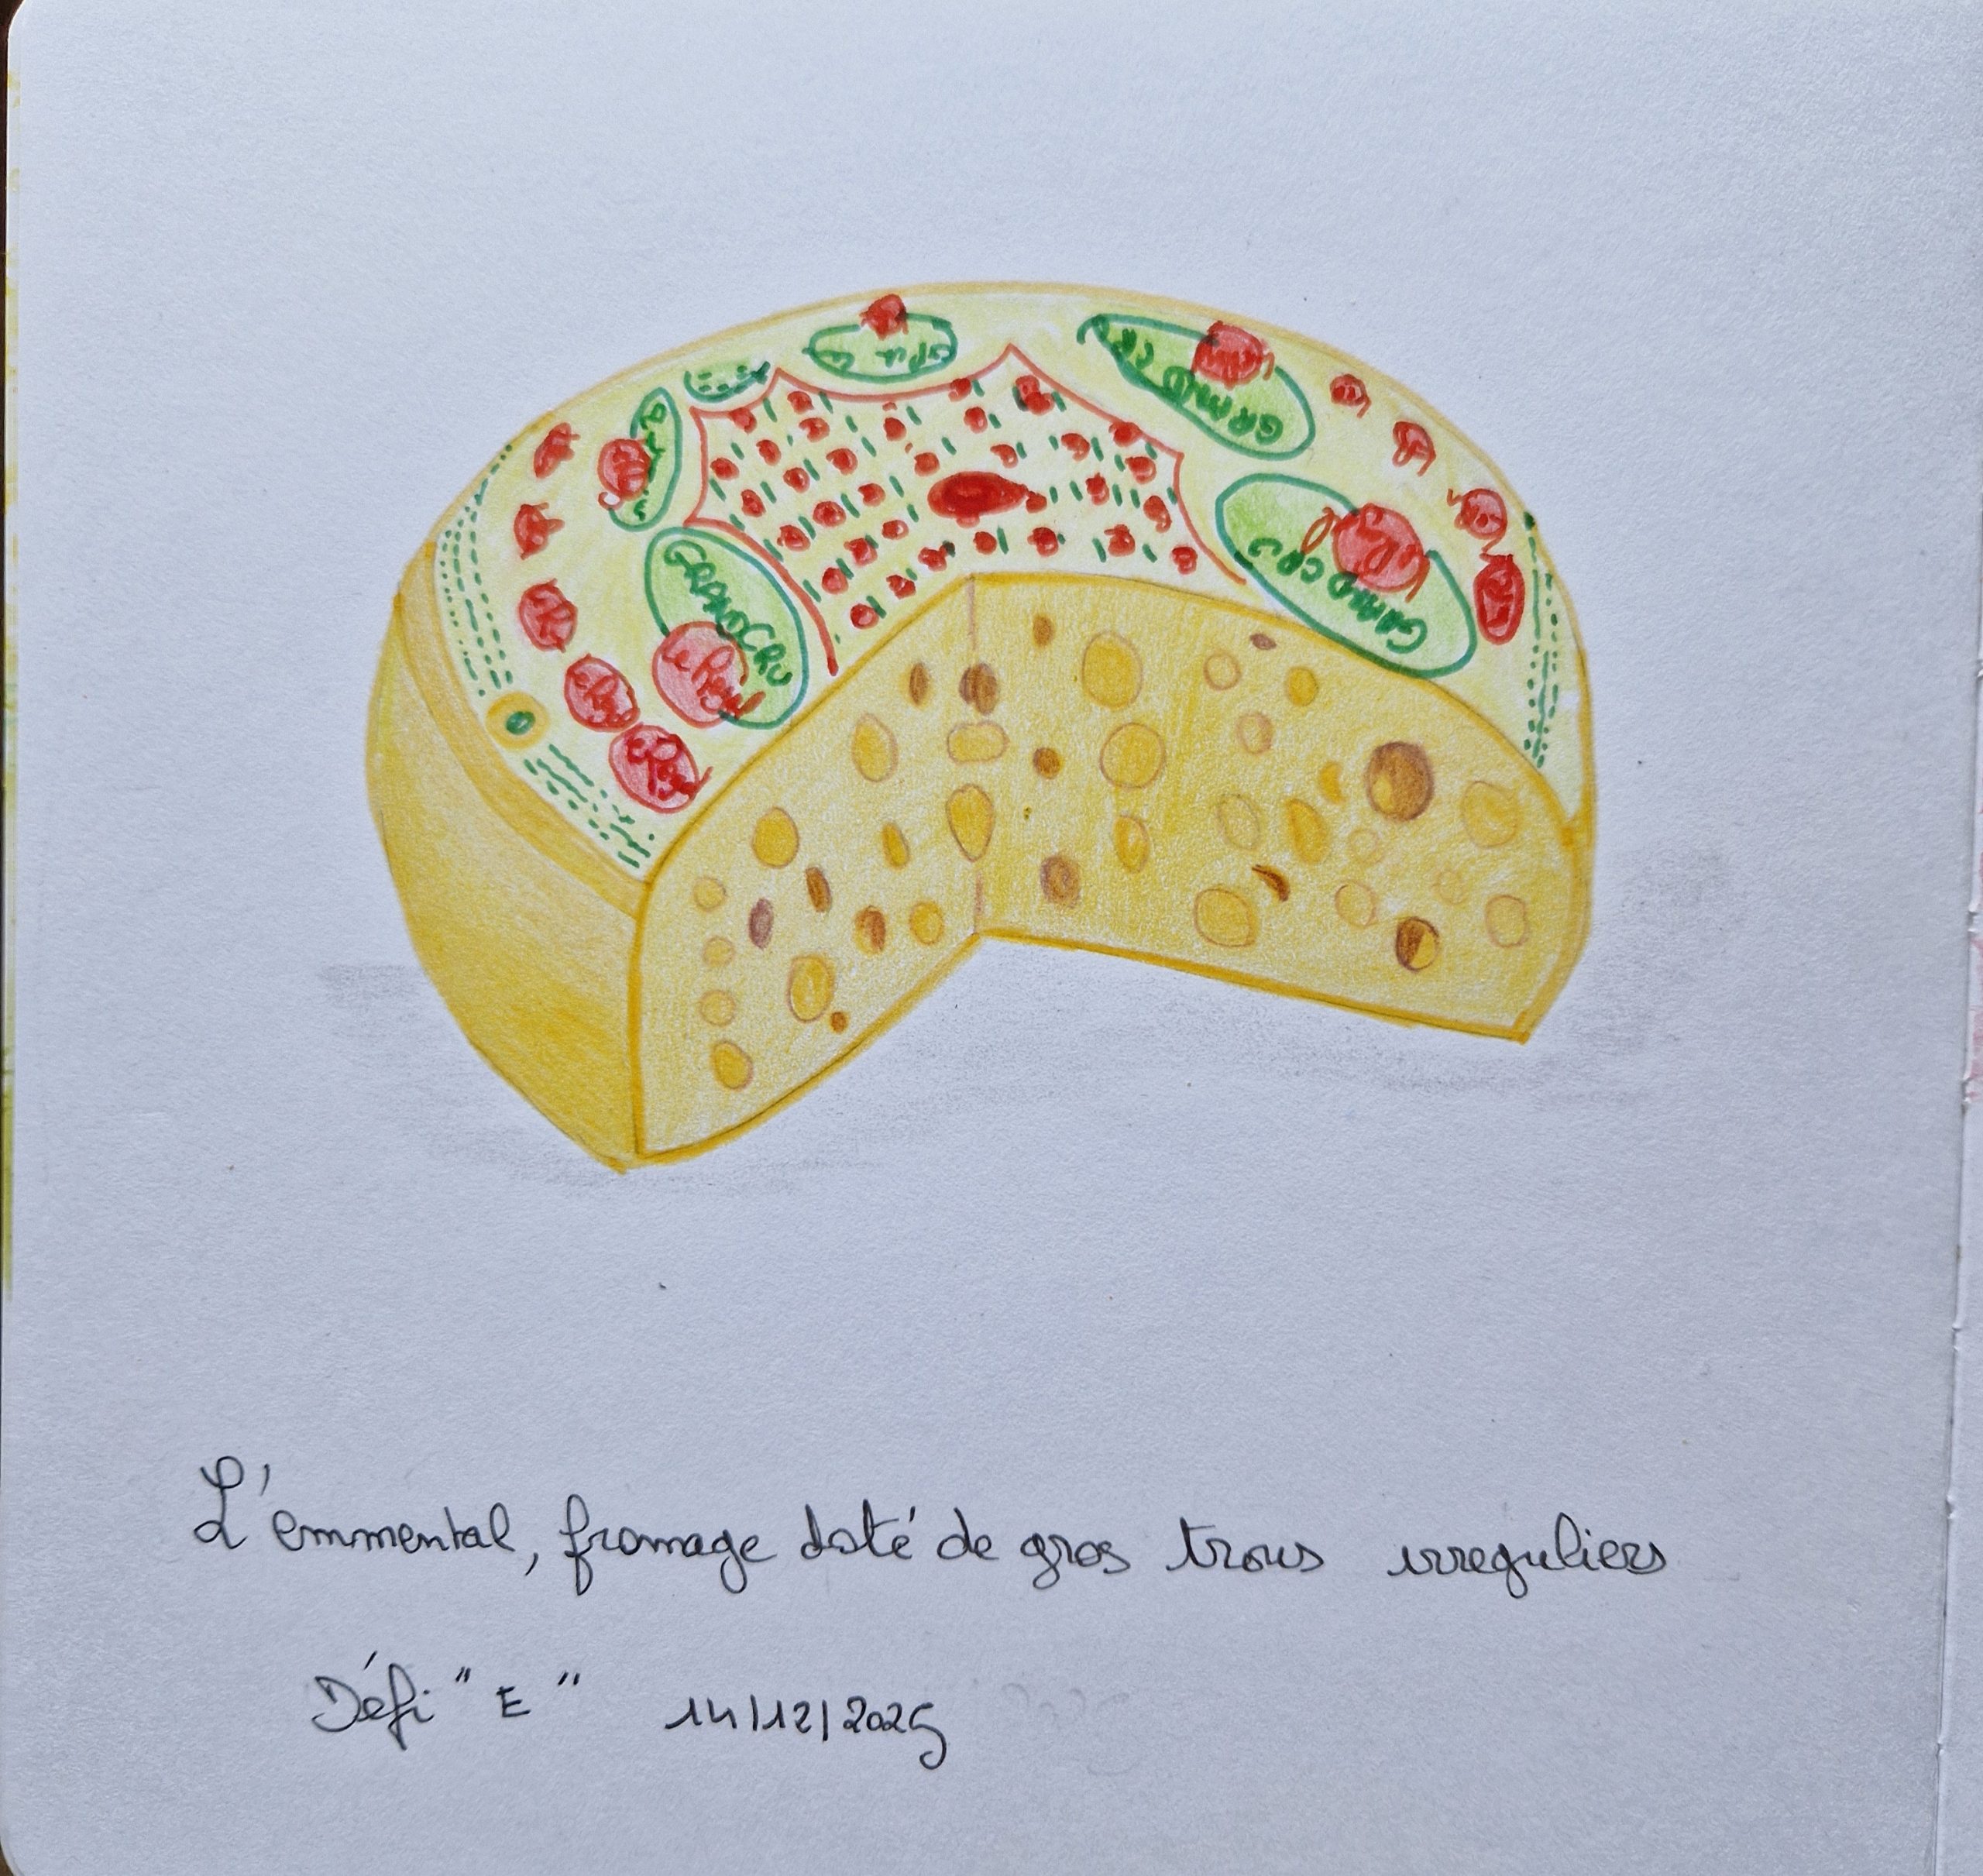 GRAND CRU
GRAND CRU
GRAND CRU
L'emmental, fromage doté de gros trous irreguliers
Défi "E" 14/12/2025